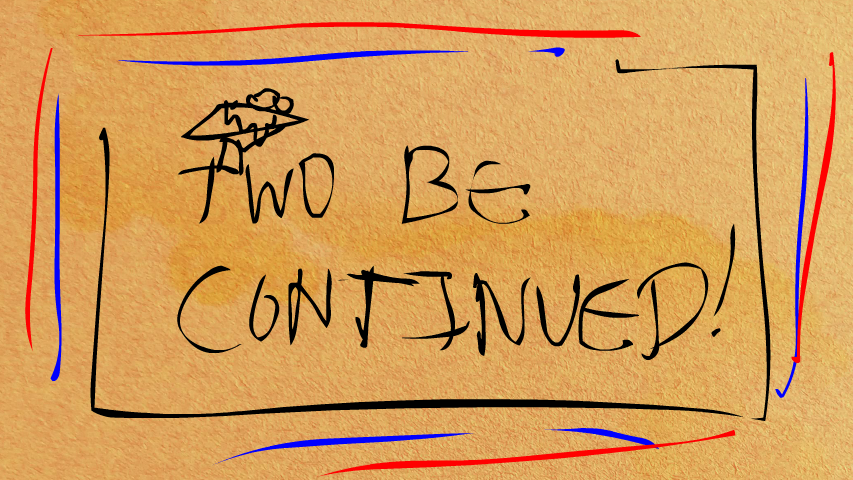 TWO BE
CONTINUED!